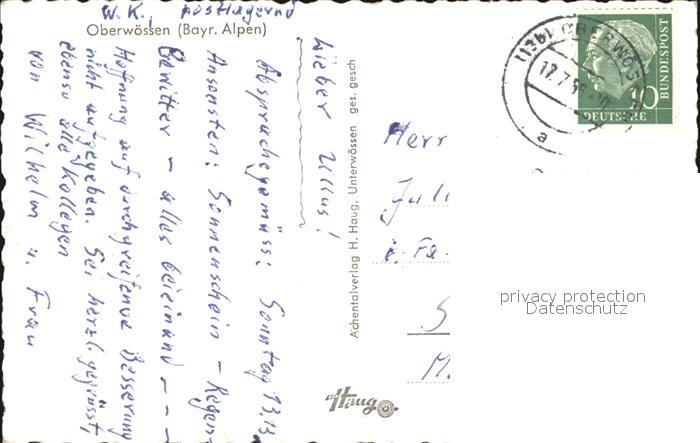 W. K., postlagernd
Oberwössen (Bayr. Alpen)
Lieber Ullus!
Absprachegemäss: Sonntag 13,13
Ansonsten: Sonnenschein - Regen
Gewitter - alles beieinand - - -
Hoffnung auf durchgreifende Besserung
nicht aufgegeben. Sei herzl. gegrüsst,
ebenso alle Kollegen
von Wilhelm u. Frau
Achentalverlag H. Haug, Unterwössen ges. gesch
Haug
Herr
Juli
i. Fa.
S
M.
(13b) OBERWÖS
17.7.5
a
10
DEUTSCHE
BUNDESPOST
privacy protection
Datenschutz